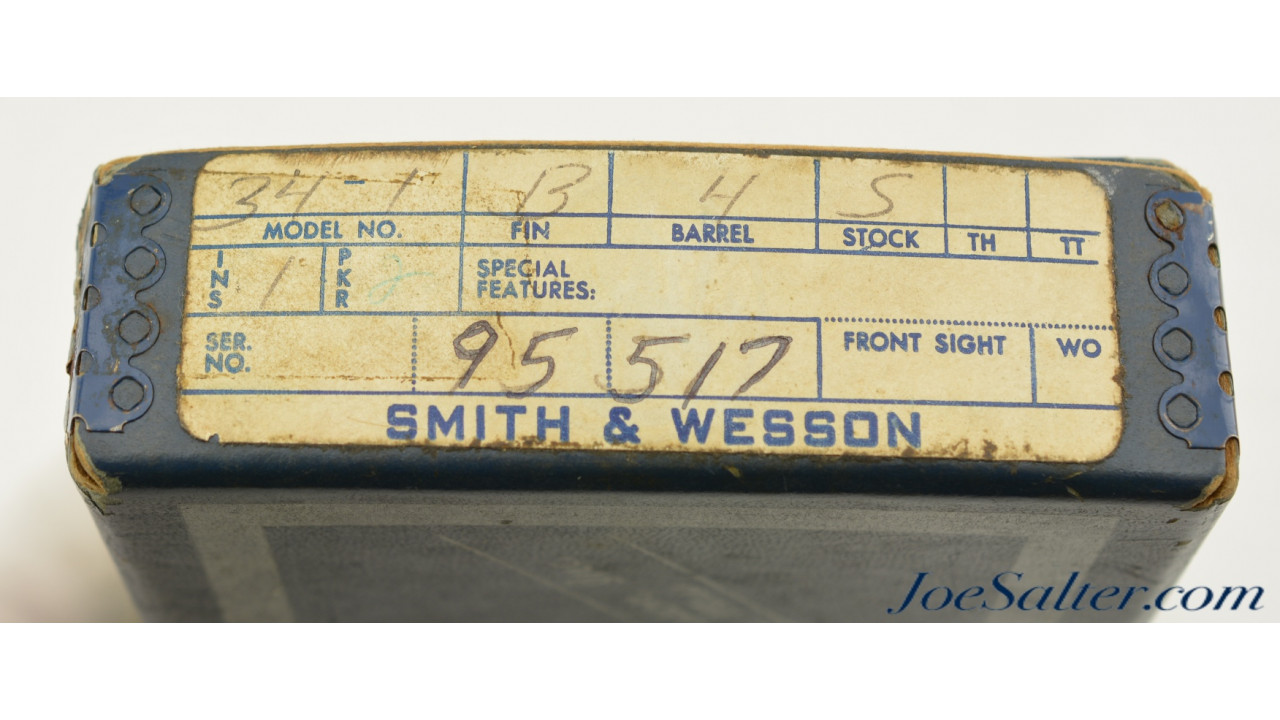 34-1 B 4 S
MODEL NO. FIN BARREL STOCK TH TT
INS 1 PKR SPECIAL
FEATURES:
SER.
NO. 95 517 FRONT SIGHT WO
SMITH & WESSON
JoeSalter.com